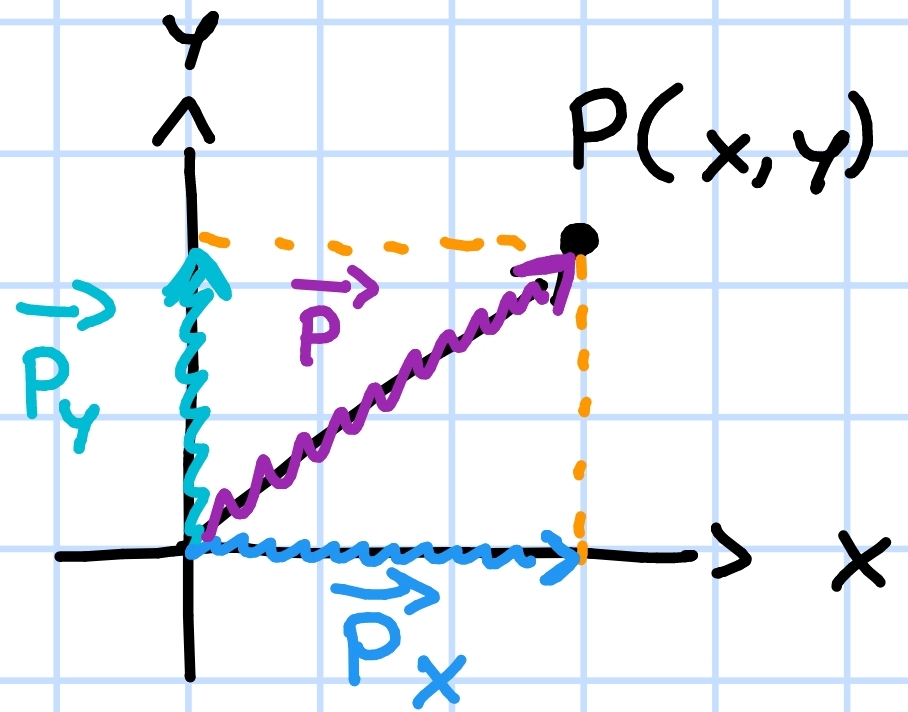 Y
P(x,y)
P
Py
X
Px